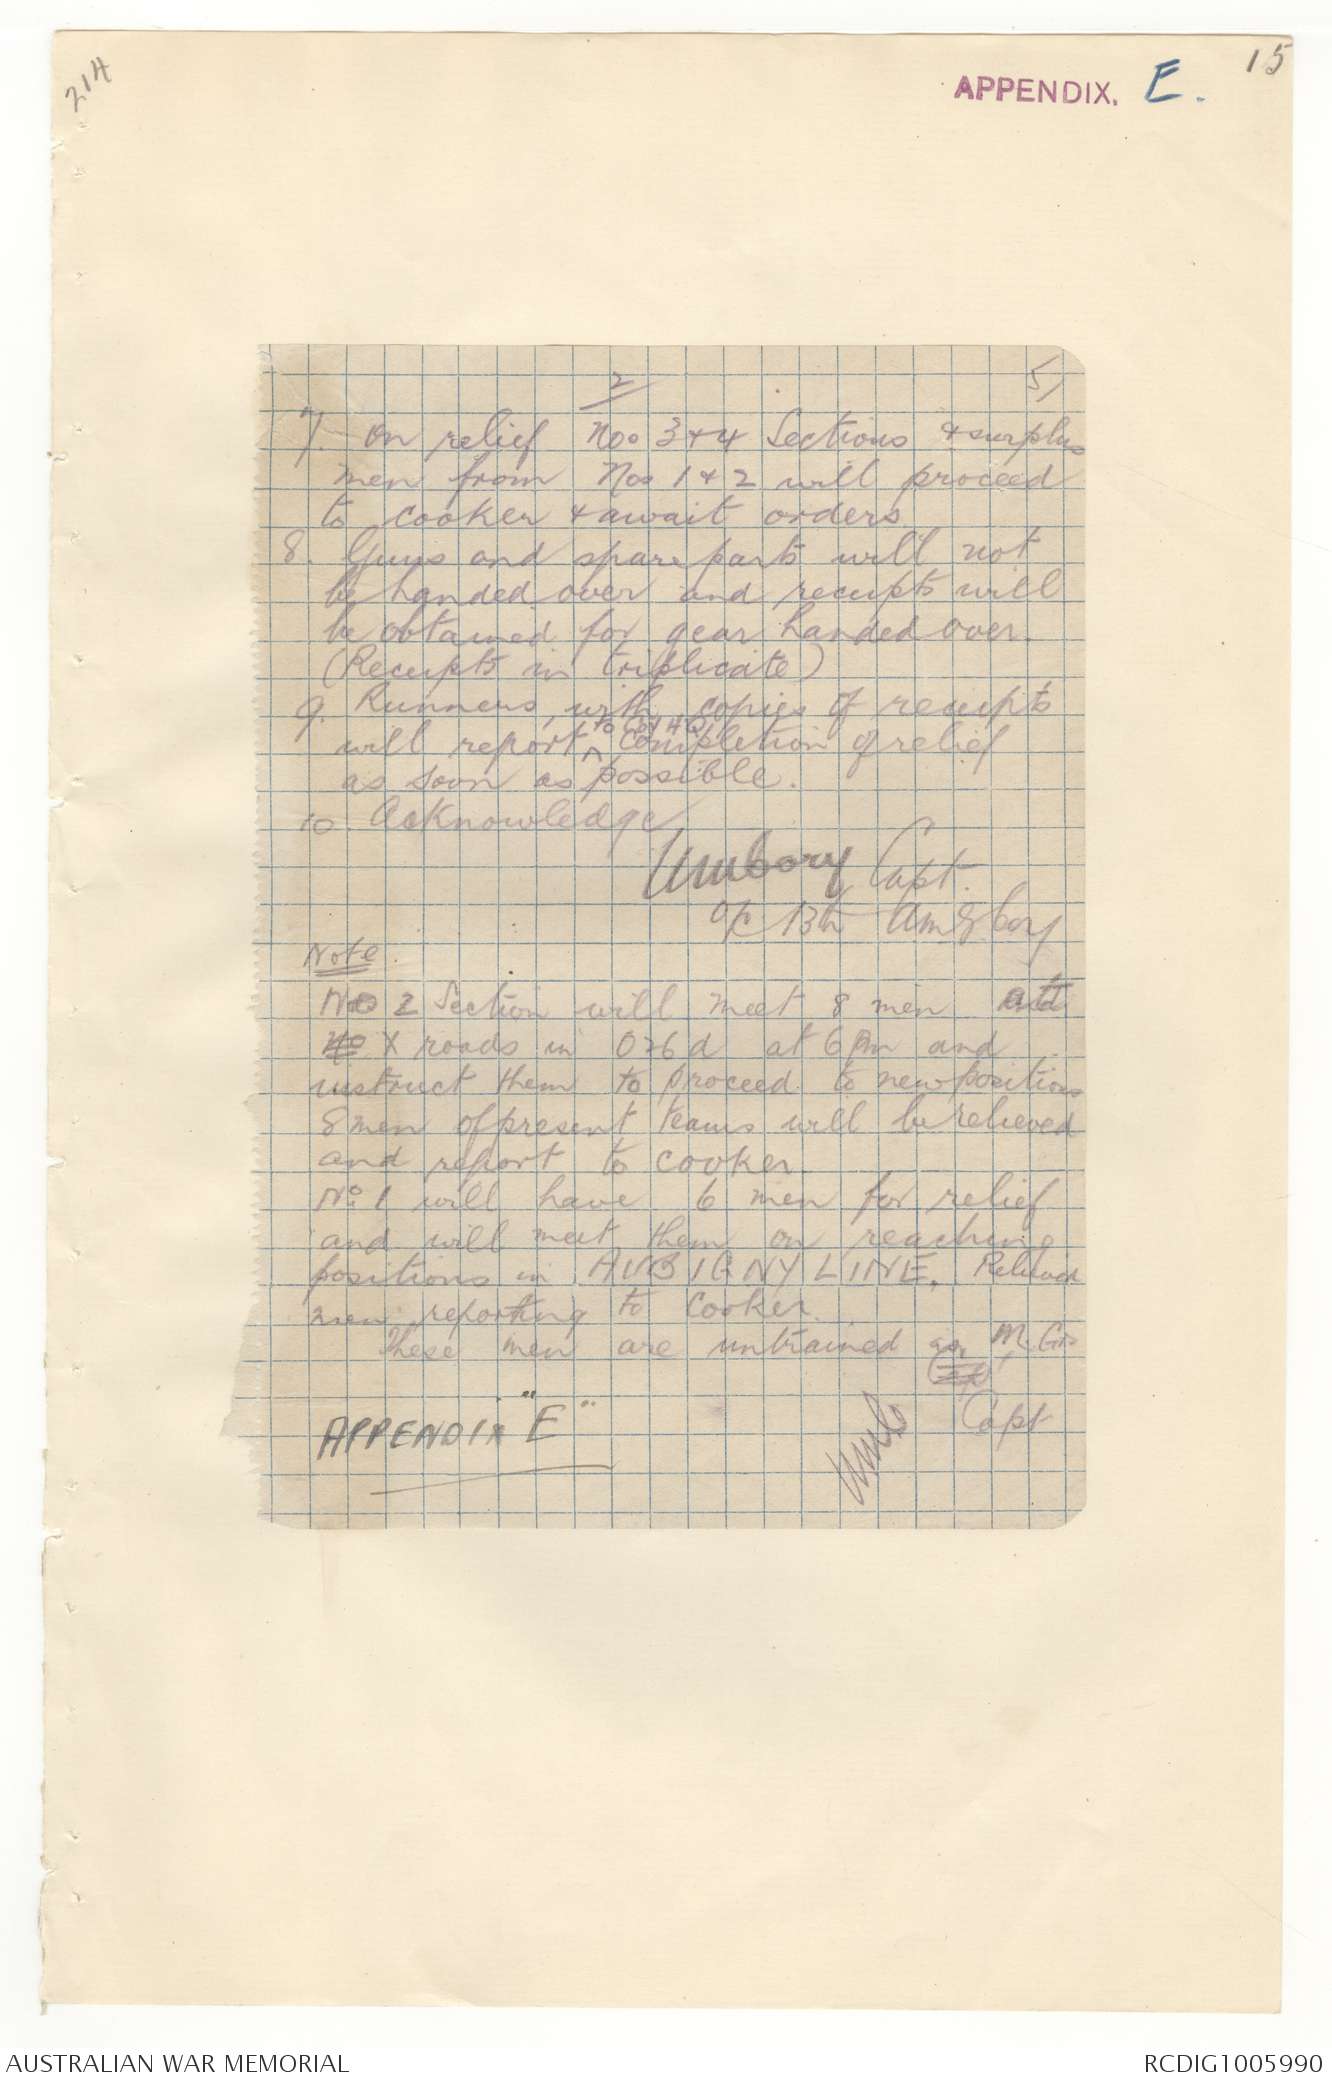 214
APPENDIX. E.
15
2
5/
7. On relief Nos 3 + 4 Sections & surplus
men from Nos 1 & 2 will proceed
to cooker & await orders
8. Guns and spare parts will not
be handed over and receipts will
be obtained for gear handed over.
(Receipts in triplicate)
9. Runners, with copies of receipts
will report to Coy HQ completion of relief
as soon as possible.
10. Acknowledge
Capt.
O/C 13th AMG Coy
Note.
No 2 Section will meet 8 men at
X roads in O26d at 6 Pm and
instruct them to proceed to new positions
8 men of present teams will be relieved
and report to cooker.
No 1 will have 6 men for relief
and will meet them on reaching
positions in AUBIGNY LINE. Relieved
men reporting to cooker.
These men are untrained as M.Grs
Capt
APPENDIX "E"
AUSTRALIAN WAR MEMORIAL
RCDIG1005990